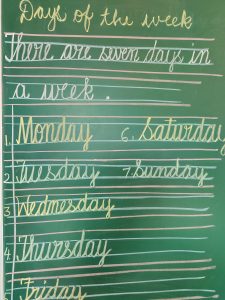 Days of the week
There are seven days in
a week.
1. Monday 6. Saturday
2. Tuesday 7. Sunday
3 Wednesday
4 Thursday
Friday